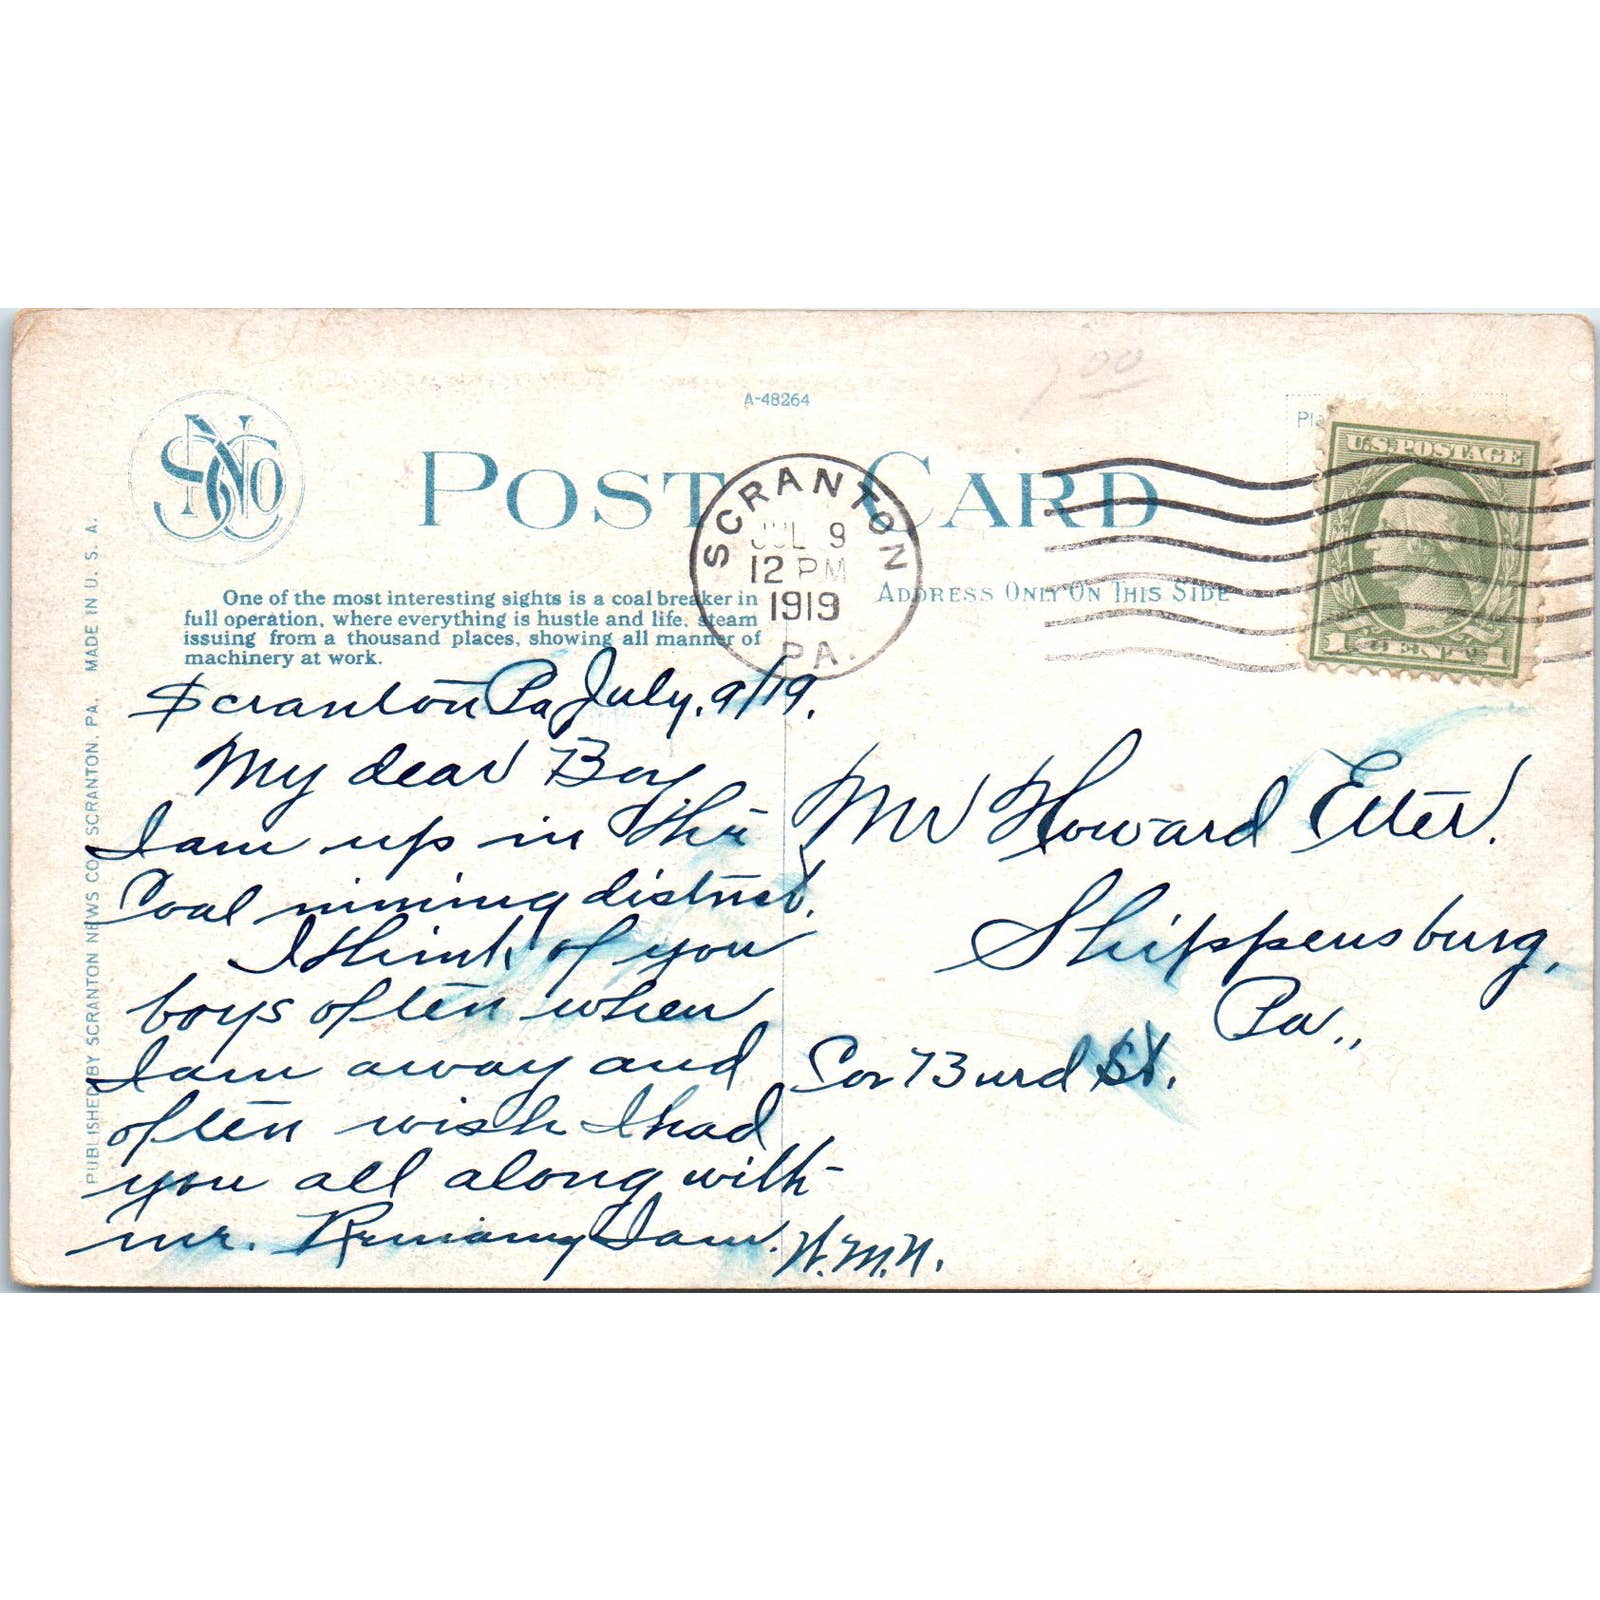 A-48264
POST CARD
SNCo
SCRANTON
JUL 9
12 PM
1919
PA.
U.S. POSTAGE
1 CENT 1
Pla
ADDRESS ONLY ON THIS SIDE
One of the most interesting sights is a coal breaker in
full operation, where everything is hustle and life, steam
issuing from a thousand places, showing all manner of
machinery at work.
PUBLISHED BY SCRANTON NEWS CO SCRANTON, PA. MADE IN U. S. A.
Scranton Pa July, 9/19.
My dear Boy
I am up in the
Coal mining district.
I think of you
boys often when
I am away and
often wish I had
you all along with
me. Remaing I am. W.M.N.
Mr Howard Etter.
Shippensburg,
Pa.,
Cor Burd St.